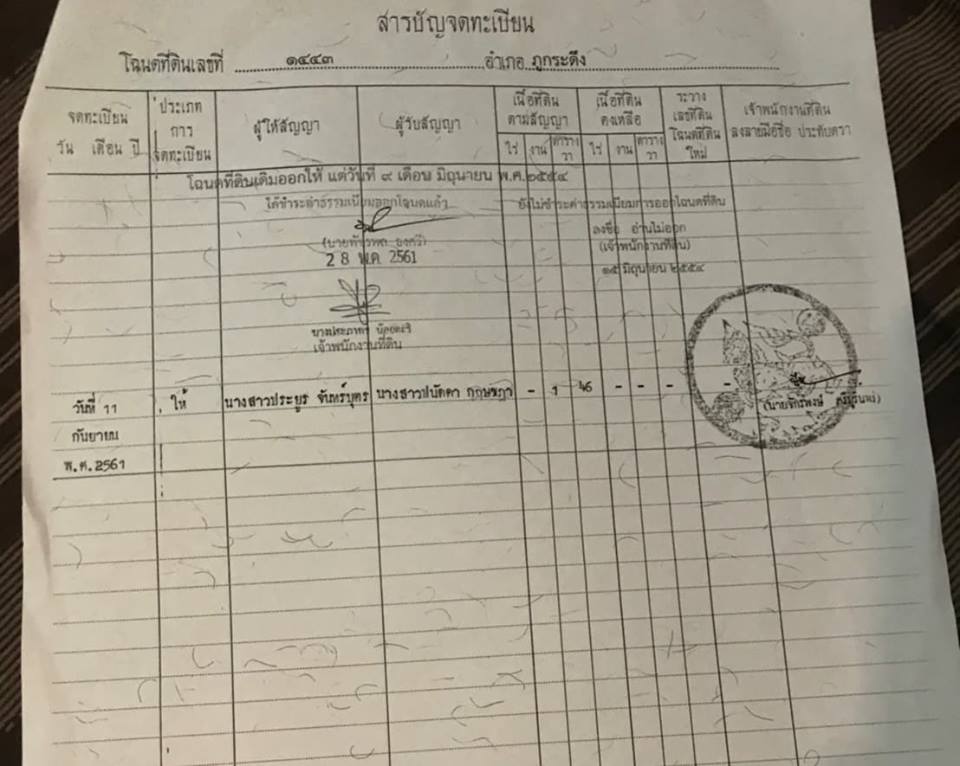 สารบัญจดทะเบียน
โฉนดที่ดินเลขที่ ๑๔๔๓ อำเภอ ภูกระดึง
จดทะเบียน วัน เดือน ปี
ประเภท การ จดทะเบียน
ผู้ให้สัญญา
ผู้รับสัญญา
เนื้อที่ดิน ตามสัญญา
ไร่ งาน ตาราง วา
เนื้อที่ดิน คงเหลือ
ไร่ งาน ตาราง วา
ระวาง เลขที่ดิน โฉนดที่ดิน ใหม่
เจ้าพนักงานที่ดิน ลงลายมือชื่อ ประทับตรา
โฉนดที่ดินเดิมออกให้ แต่วันที่ ๙ เดือน มิถุนายน พ.ศ.๒๕๕๔
ได้ชำระค่าธรรมเนียมออกโฉนดแล้ว
ยังไม่ชำระค่าธรรมเนียมการออกโฉนดที่ดิน
ลงชื่อ อ่านไม่ออก
(เจ้าพนักงานที่ดิน)
๑๕ มิถุนายน ๒๕๕๔
28 พ.ค. 2561
เจ้าพนักงานที่ดิน
วันที่ 11 ให้ นางสาวประยูร จันทร์บุตร นางสาวปนัดดา - 1 46 - - - -
กันยายน
พ.ศ.2561